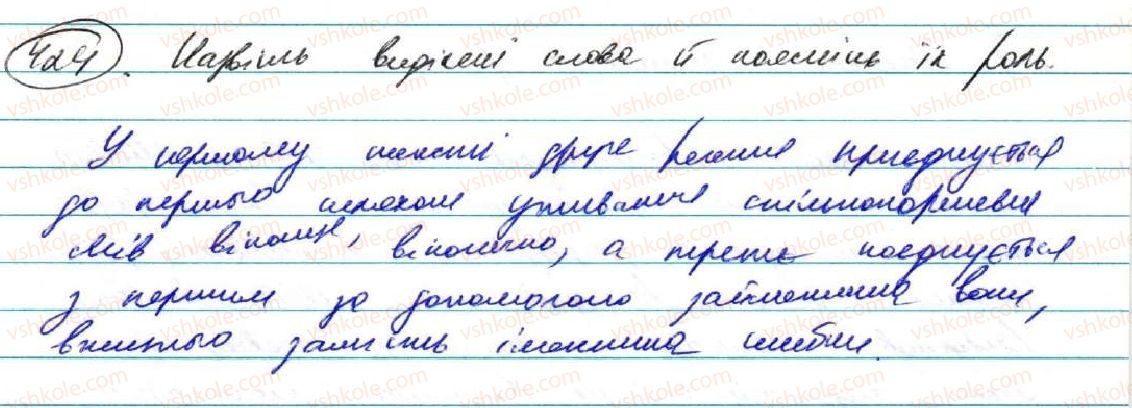 424. Назвіть виділені слова й поясніть їх роль.
У першому тексті друге речення приєднується
до першого шляхом уживання спільнокореневих
слів віконце, віконечко, а третє поєднується
з першим за допомогою займенника вони,
вжитого замість іменника шибки.